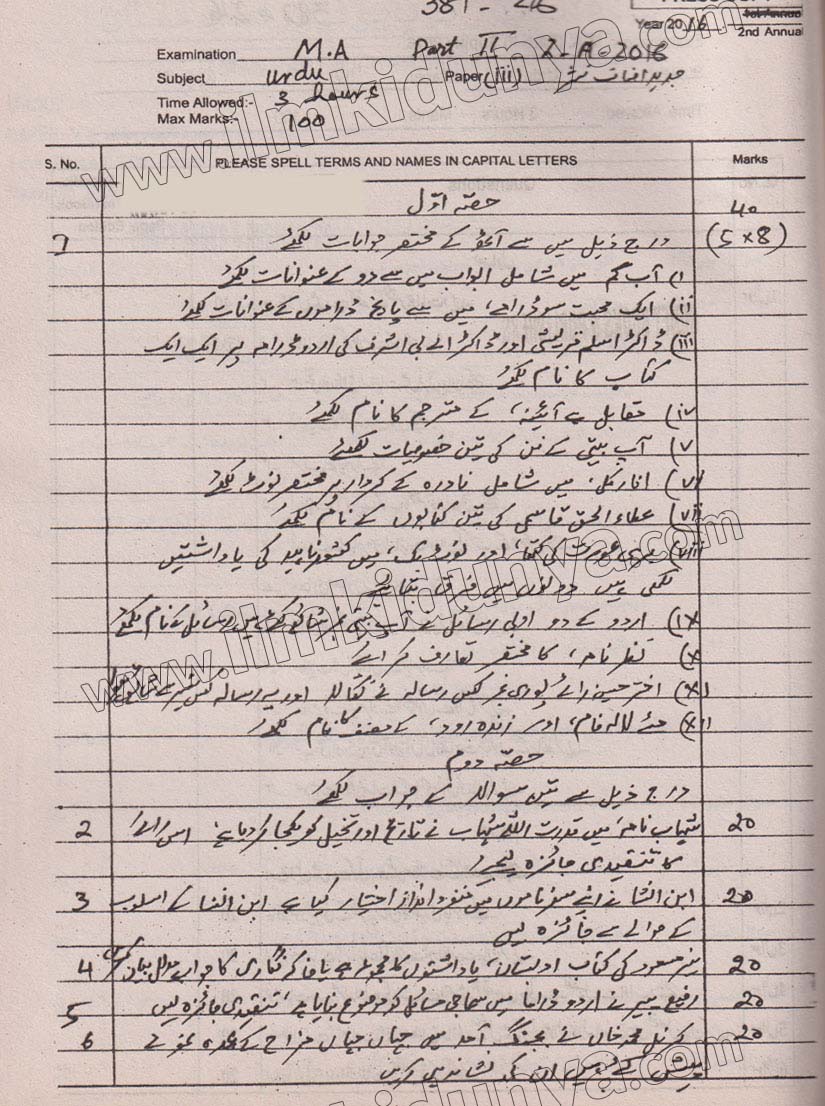 381-26
Year 2016
1st Annual
2nd Annual
Examination M.A Part II 2-A-2016
Subject Urdu Paper (iii) جدید اصناف نثر
Time Allowed:- 3 hours
Max Marks:- 100
S. No. PLEASE SPELL TERMS AND NAMES IN CAPITAL LETTERS Marks
حصّہ اوّل 40
درج ذیل میں سے آٹھ کے مختصر جوابات لکھئے (5x8)
i) آب گم میں شامل ابواب میں سے دو کے عنوانات لکھئے
ii) ایک محبت سو ڈرامے، میں سے پانچ ڈراموں کے عنوانات لکھئے
iii) ڈاکٹر اسلم قریشی اور ڈاکٹر اے بی اشرف کی اردو ڈرامہ پر ایک ایک
کتاب کا نام لکھئے
iv) مقابل ہے آئینہ، کے مترجم کا نام لکھئے
v) آپ بیتی کے فن کی تین خصوصیات لکھئے
vi) انارکلی، میں شامل نادرہ کے کردار پر مختصر نوٹ لکھئے
vii) عطاء الحق قاسمی کی تین کتابوں کے نام لکھئے
viii) بری عورت کی کتھا، اور نوٹ بک، میں کشور ناہید کی یاداشتیں
لکھی ہیں دونوں میں فرق بتائیے
ix) اردو کے دو ادبی رسائل نے آپ بیتی نمبر شائع کئے ہیں رسائل کے نام لکھئے
x) نظر نامہ، کا مختصر تعارف کرائیے
xi) اختر حسین رائے پوری نمبر کس رسالہ نے نکالا اور یہ رسالہ کس شہر سے
xii) مئے لالہ فام، اور زندہ رود، کے مصنف کا نام لکھئے
حصّہ دوم
درج ذیل سے تین سوالوں کے جواب لکھئے
2 شہاب نامہ، میں قدرت اللہ شہاب نے تاریخ اور تخیل کو یکجا کر دیا ہے، اس رائے 20
کا تنقیدی جائزہ لیجئے
3 ابن انشا نے اپنے سفر ناموں میں منفرد انداز اختیار کیا ہے ابن انشا کے اسلوب 20
کے حوالے سے جائزہ لیں
4 منیر مسعود کی کتاب ادبستان، یاداشتوں کا مجموعہ ہے یا خاکہ نگاری کا جواب مدلل بیان کریں 20
5 رفیع پیر نے اردو ڈراما میں سماجی مسائل کو موضوع بنایا ہے، تنقیدی جائزہ لیں 20
6 کرنل محمد خان نے بجنگ آمد میں جہاں جہاں مزاح کے عمدہ نمونے 20
پیش کئے ہیں، ان کی نشاندہی کریں
www.ilmkidunya.com
www.ilmkidunya.com
www.ilmkidunya.com
ilmkidunya.com